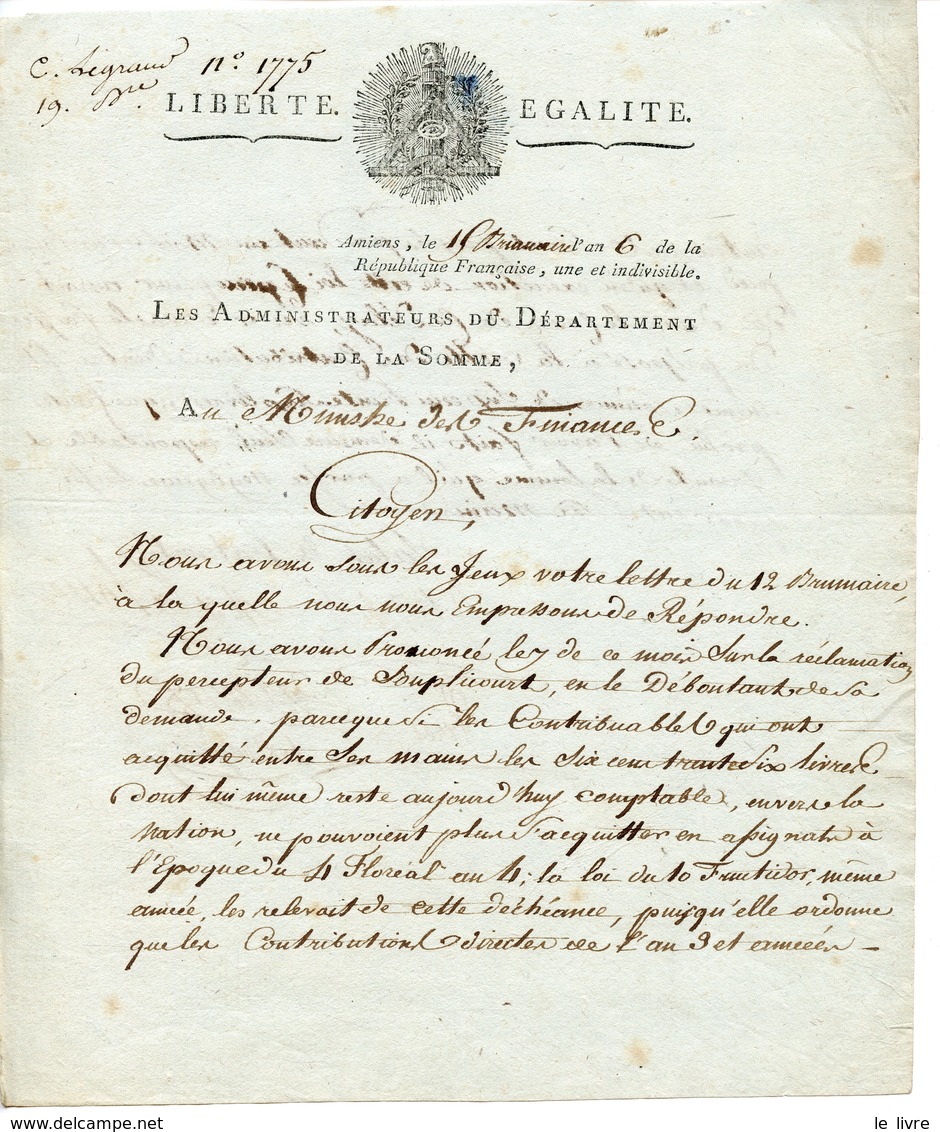 C. Légrand n.º 1775
19. Bre
LIBERTE. EGALITE.
Amiens, le 15 Brumaire l'an 6 de la
République Française, une et indivisible.
LES ADMINISTRATEURS DU DÉPARTEMENT
DE LA SOMME,
Au Ministre des Finances.
Citoyen,
Nous avons sous les yeux votre lettre du 12 Brumaire,
à la quelle nous nous Empressons de Répondre.
Nous avons Prononcé le 7 de ce mois sur la réclamation
du percepteur de Souplicourt, en le Déboutant de sa
demande. parceque si les Contribuables qui ont
acquitté entre ses mains les six cens trente six livres
dont lui même reste aujourd'huy comptable, envers la
nation, ne pouvoient plus s'acquitter en assignats à
l'Epoque du 4 Floréal an 4; la loi du 10 Fructidor, même
année, les relevait de cette déchéance, puisqu'elle ordonne
que les Contributions directes de l'an 3 et années
le livre